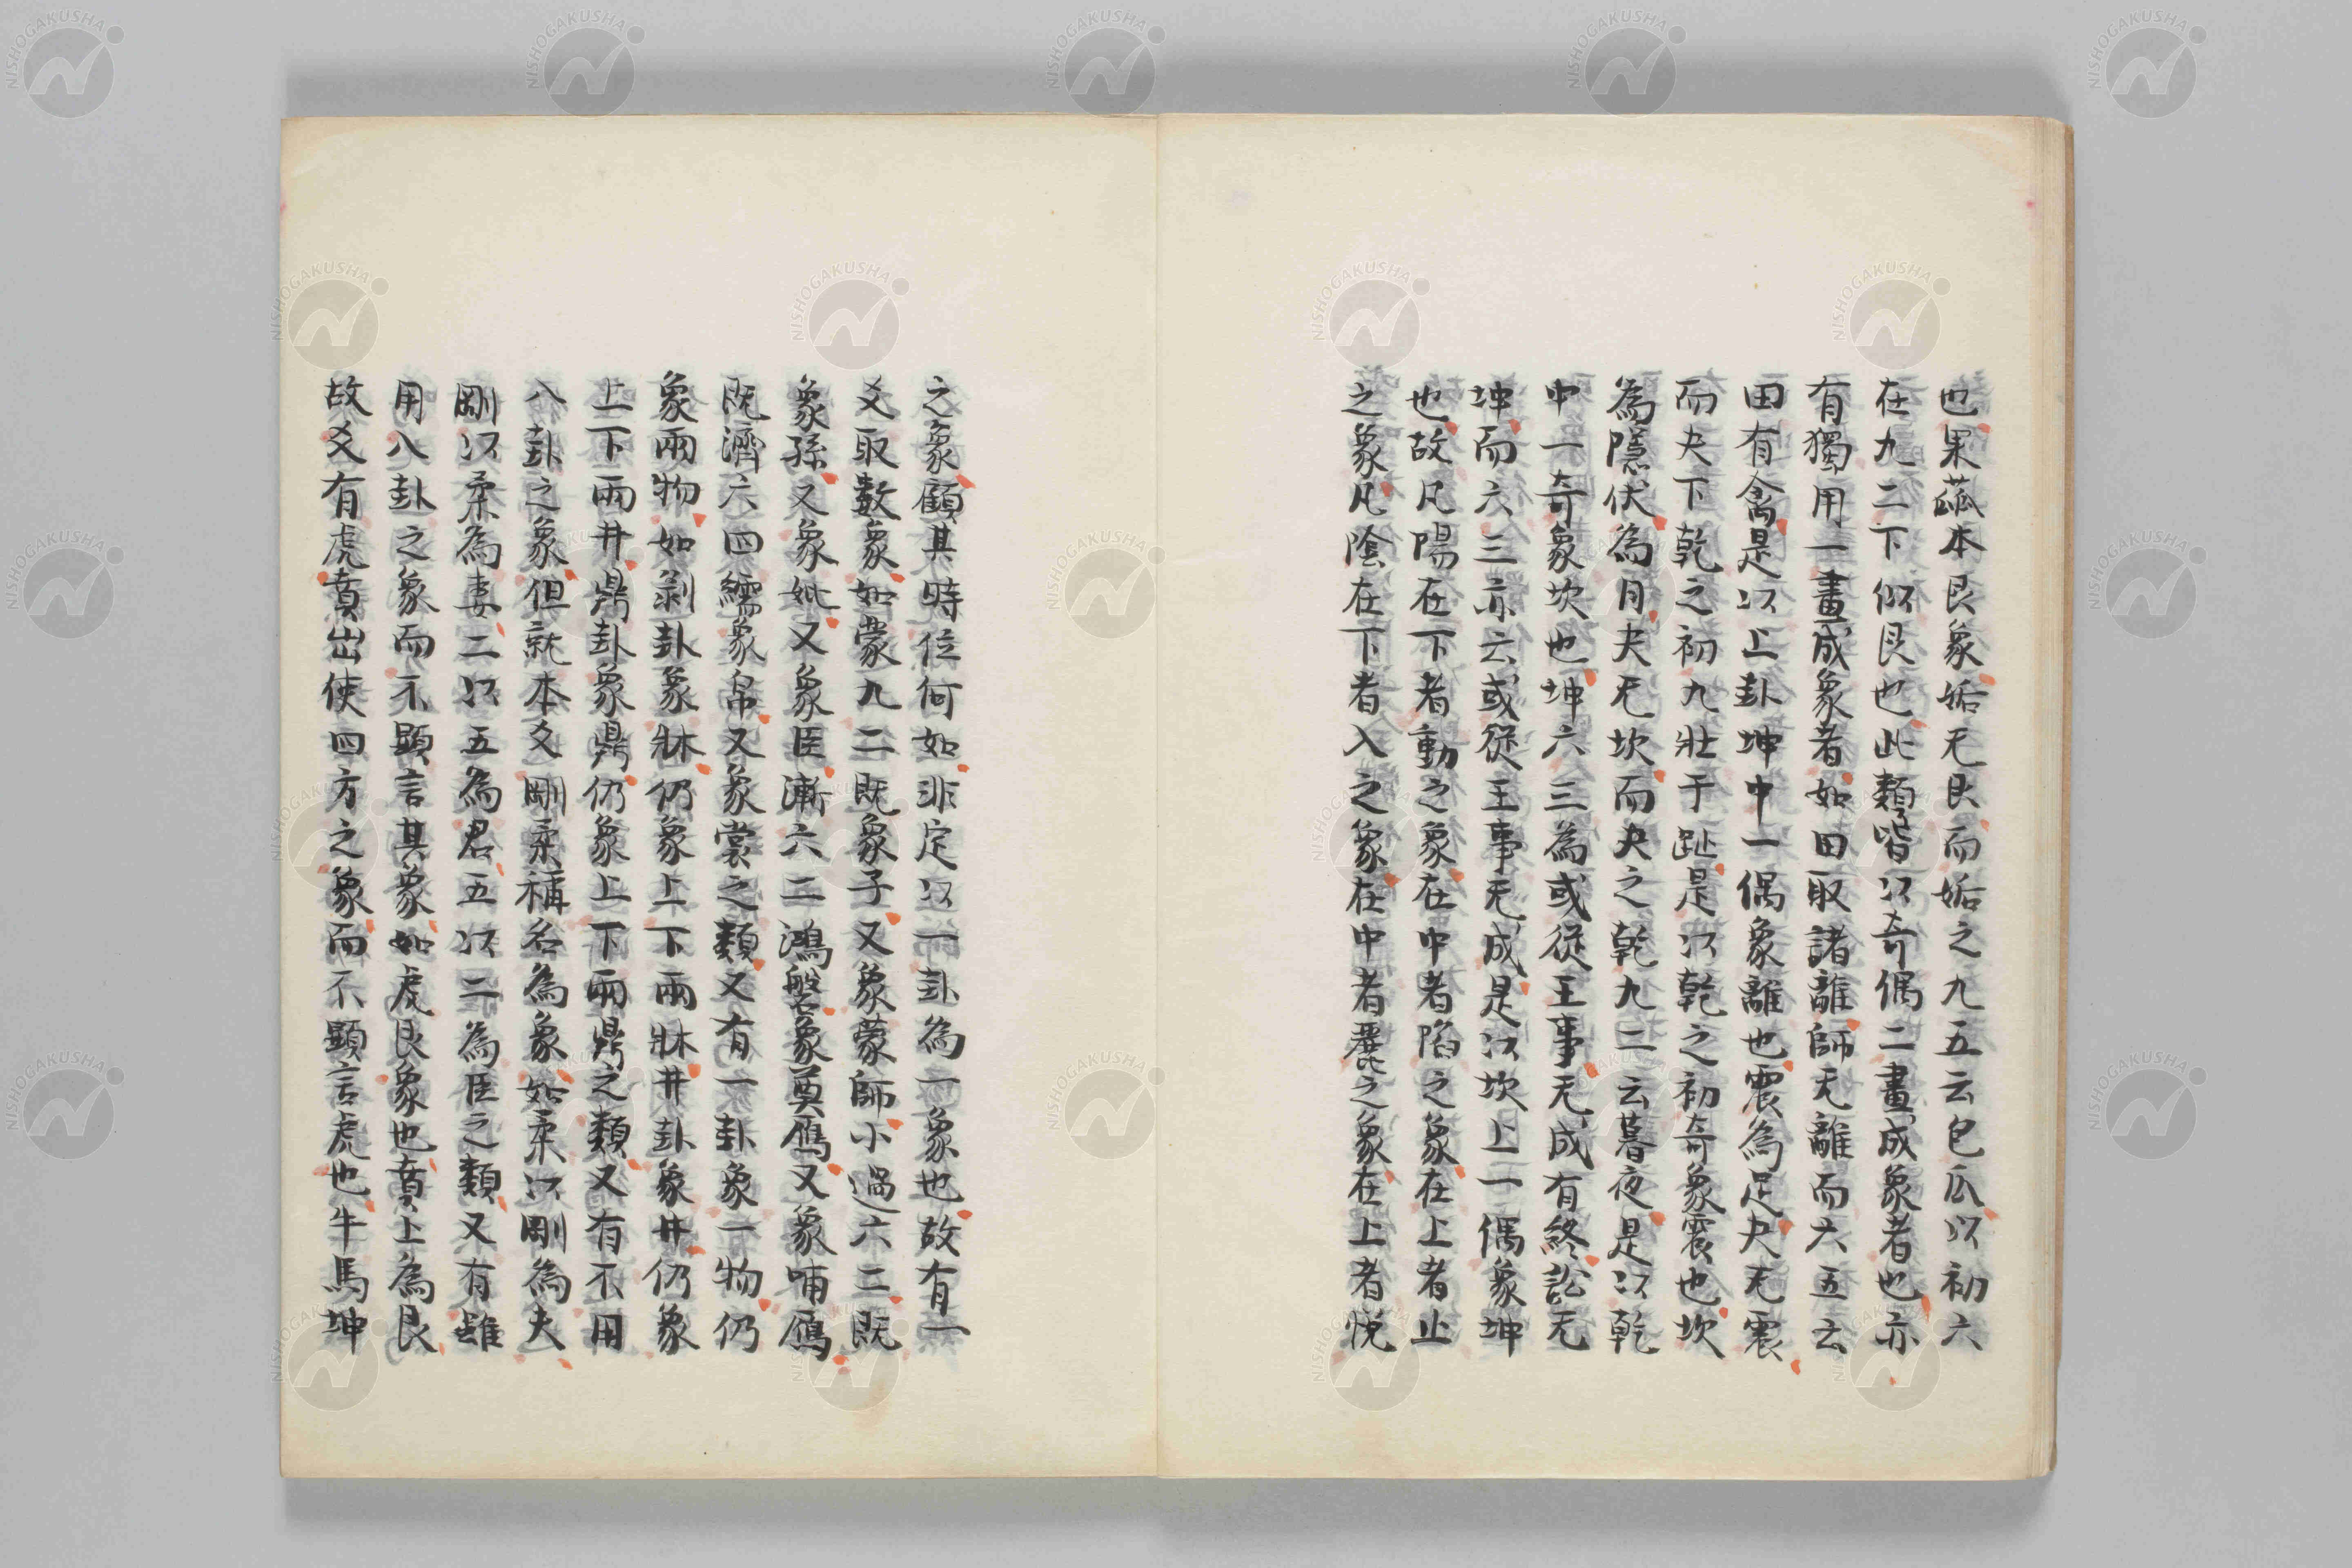 也果蓏本艮象姤无艮而姤之九五云包瓜以初六
在九二下似艮也此類皆以奇偶二畫成象者也亦
有獨用一畫成象者如田取諸離師无離而六五云
田有禽是以上卦坤中一偶象離也震為足夬无震
而夬下乾之初九壯于趾是以乾之初奇象震也坎
為隱伏為月夬无坎而夬之乾九二云暮夜是以乾
中一奇象坎也坤六三為或從王事无成有終訟无
坤而六三亦云或從王事无成是以坎上一偶象坤
也故凡陽在下者動之象在中者陷之象在上者止
之象凡陰在下者入之象在中者麗之象在上者悅
之象顧其時位何如非定以一卦為一象也故有一
爻取數象如蒙九二既象子又象蒙師小過六二既
象孫又象妣又象臣漸六二鴻磐象奠鴈又象哺鴈
既濟六四繻象帛又象裳之類又有一卦象一物仍
象兩物如剝卦象牀仍象上下兩牀井卦象井仍象
上下兩井鼎卦象鼎仍象上下兩鼎之類又有不用
八卦之象但就本爻剛柔稱名為象如柔以剛為夫
剛以柔為妻二以五為君五以二為臣之類又有雖
用八卦之象而不顯言其象如虎艮象也賁上為艮
故爻有虎賁出使四方之象而不顯言虎也牛馬坤